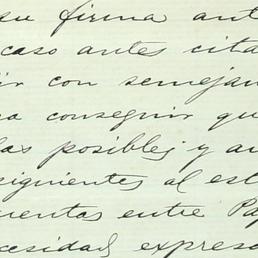 su firma ant
caso antes cita
ir con semejan
a conseguir qu
las posibles y au
siguientes al est
uentas entre Pa
cesidad expreso